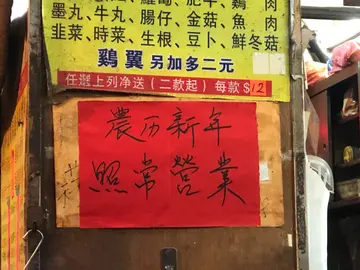 墨丸、牛丸、腸仔、金菇、魚肉
韭菜、時菜、生根、豆卜、鮮冬菇
鷄翼 另加多二元
任選上列净送（二款起）每款$12
農历新年
照常營業